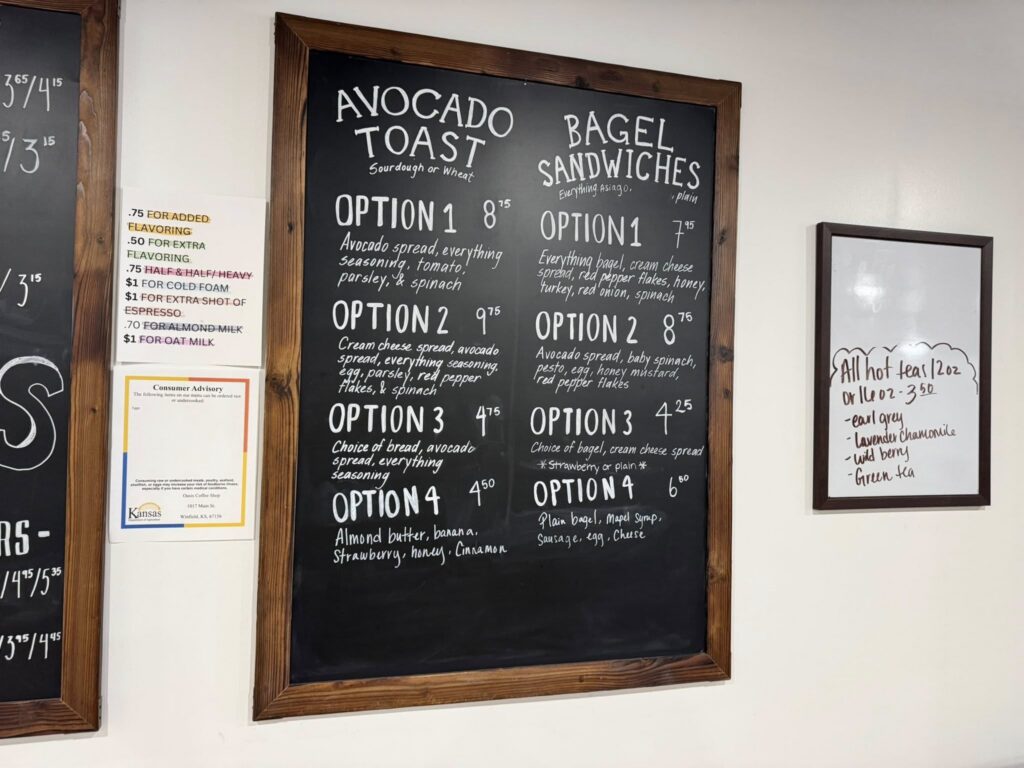 3⁶⁵/4¹⁵
/3¹⁵
/3¹⁵
S
RS-
/4⁹⁵/5³⁵
/3⁹⁵/4⁴⁵
.75 FOR ADDED
FLAVORING
.50 FOR EXTRA
FLAVORING
.75 HALF & HALF/ HEAVY
$1 FOR COLD FOAM
$1 FOR EXTRA SHOT OF
ESPRESSO
.70 FOR ALMOND MILK
$1 FOR OAT MILK
Consumer Advisory
The following items on our menu can be ordered raw
or undercooked:
Consuming raw or undercooked meats, poultry, seafood,
shellfish, or eggs may increase your risk of foodborne illness,
especially if you have certain medical conditions.
Oasis Coffee Shop
1017 Main St.
Winfield, KS, 67156
Kansas
Department of Agriculture
AVOCADO
TOAST
Sourdough or Wheat
OPTION 1 8⁷⁵
Avocado spread, everything
seasoning, tomato,
parsley, & spinach
OPTION 2 9⁷⁵
Cream cheese spread, avocado
spread, everything seasoning,
egg, parsley, red pepper
flakes, & spinach
OPTION 3 4⁷⁵
Choice of bread, avocado
spread, everything
seasoning
OPTION 4 4⁵⁰
Almond butter, banana,
Strawberry, honey, Cinnamon
BAGEL
SANDWICHES
Everything, Asiago, , plain
OPTION 1 7⁹⁵
Everything bagel, cream cheese
spread, red pepper flakes, honey,
turkey, red onion, spinach
OPTION 2 8⁷⁵
Avocado spread, baby spinach,
pesto, egg, honey mustard,
red pepper flakes
OPTION 3 4²⁵
Choice of bagel, cream cheese spread
*Strawberry or plain*
OPTION 4 6⁵⁰
Plain bagel, Mapel Syrup,
Sausage, egg, Cheese
All hot teas 12oz
or 16oz - 3⁵⁰
- earl grey
- Lavender chamomile
- wild berry
- Green tea